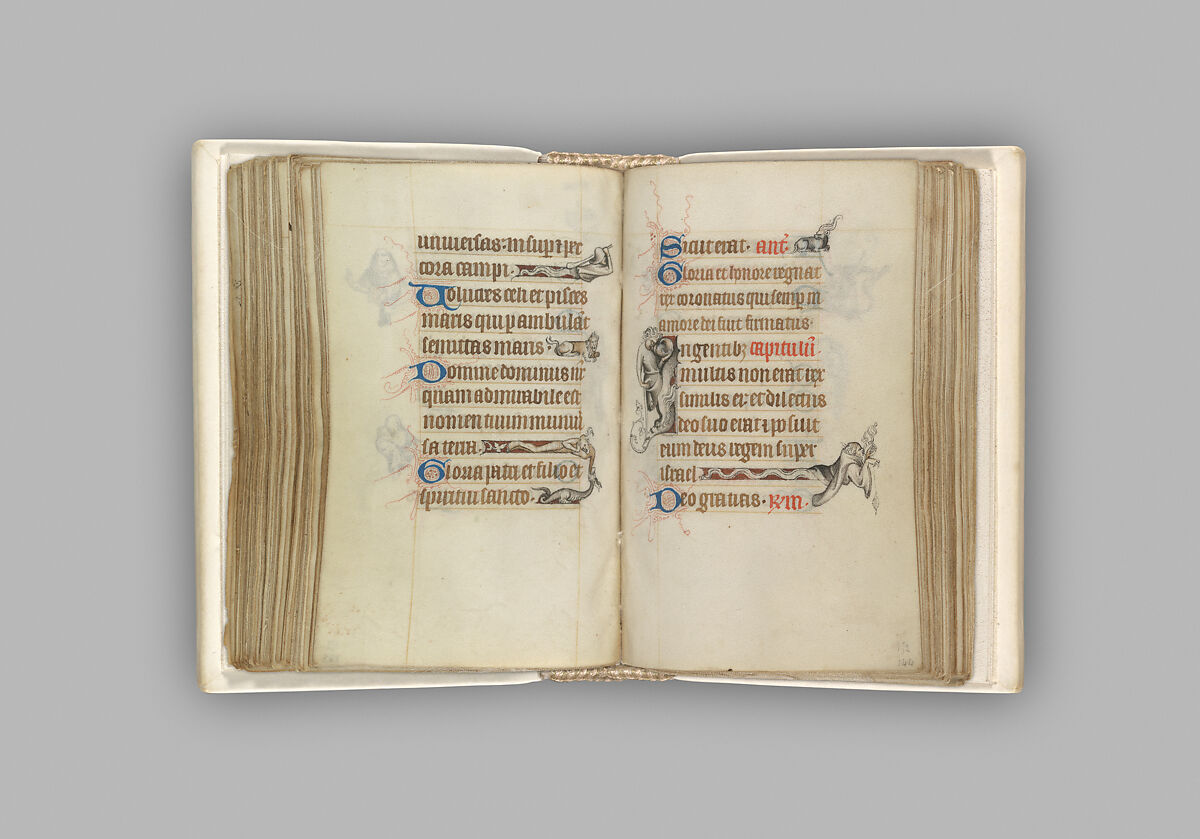 universas·insup et pec
cora campi·
Volucres celi et pisces
maris qui p ambulāt
semitas maris·
Domine dominus nr̄
quam admirabile est
nomen tuum in univ̄
sa terra·
Gloria patri et filio et
spiritui sancto·
Sicut erat· ant̄·
Gloria et honore regnat
rex coronatus qui semp in
amore dei fuit firmatus·
In gentibꝫ capitulū·
multis non erat rex
similis ei· et dilectus
deo suo erat ⁊ posuit
eum deus regem super
israel·
Deo gratias·
144